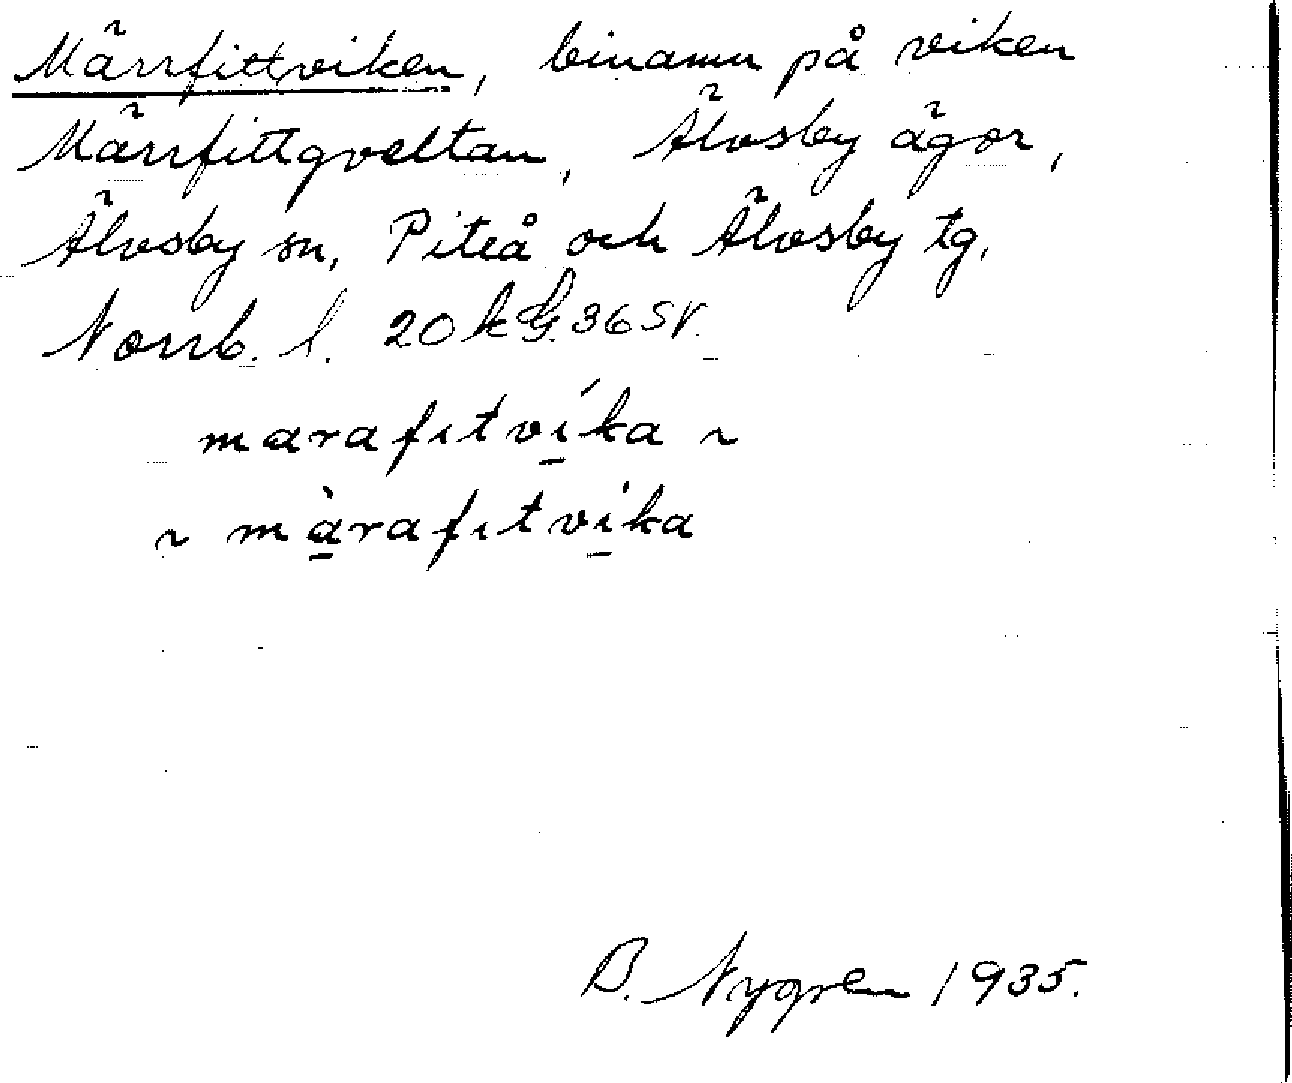 Märrfittviken, binamn på viken
Märrfittgveltan, Älvsby ägor,
Älvsby sn, Piteå och Älvsby tg,
Norrb. l. 20 k 36 SV.
marafıtvíka ~
~ màrafıtvíka
B. Nygren 1935.